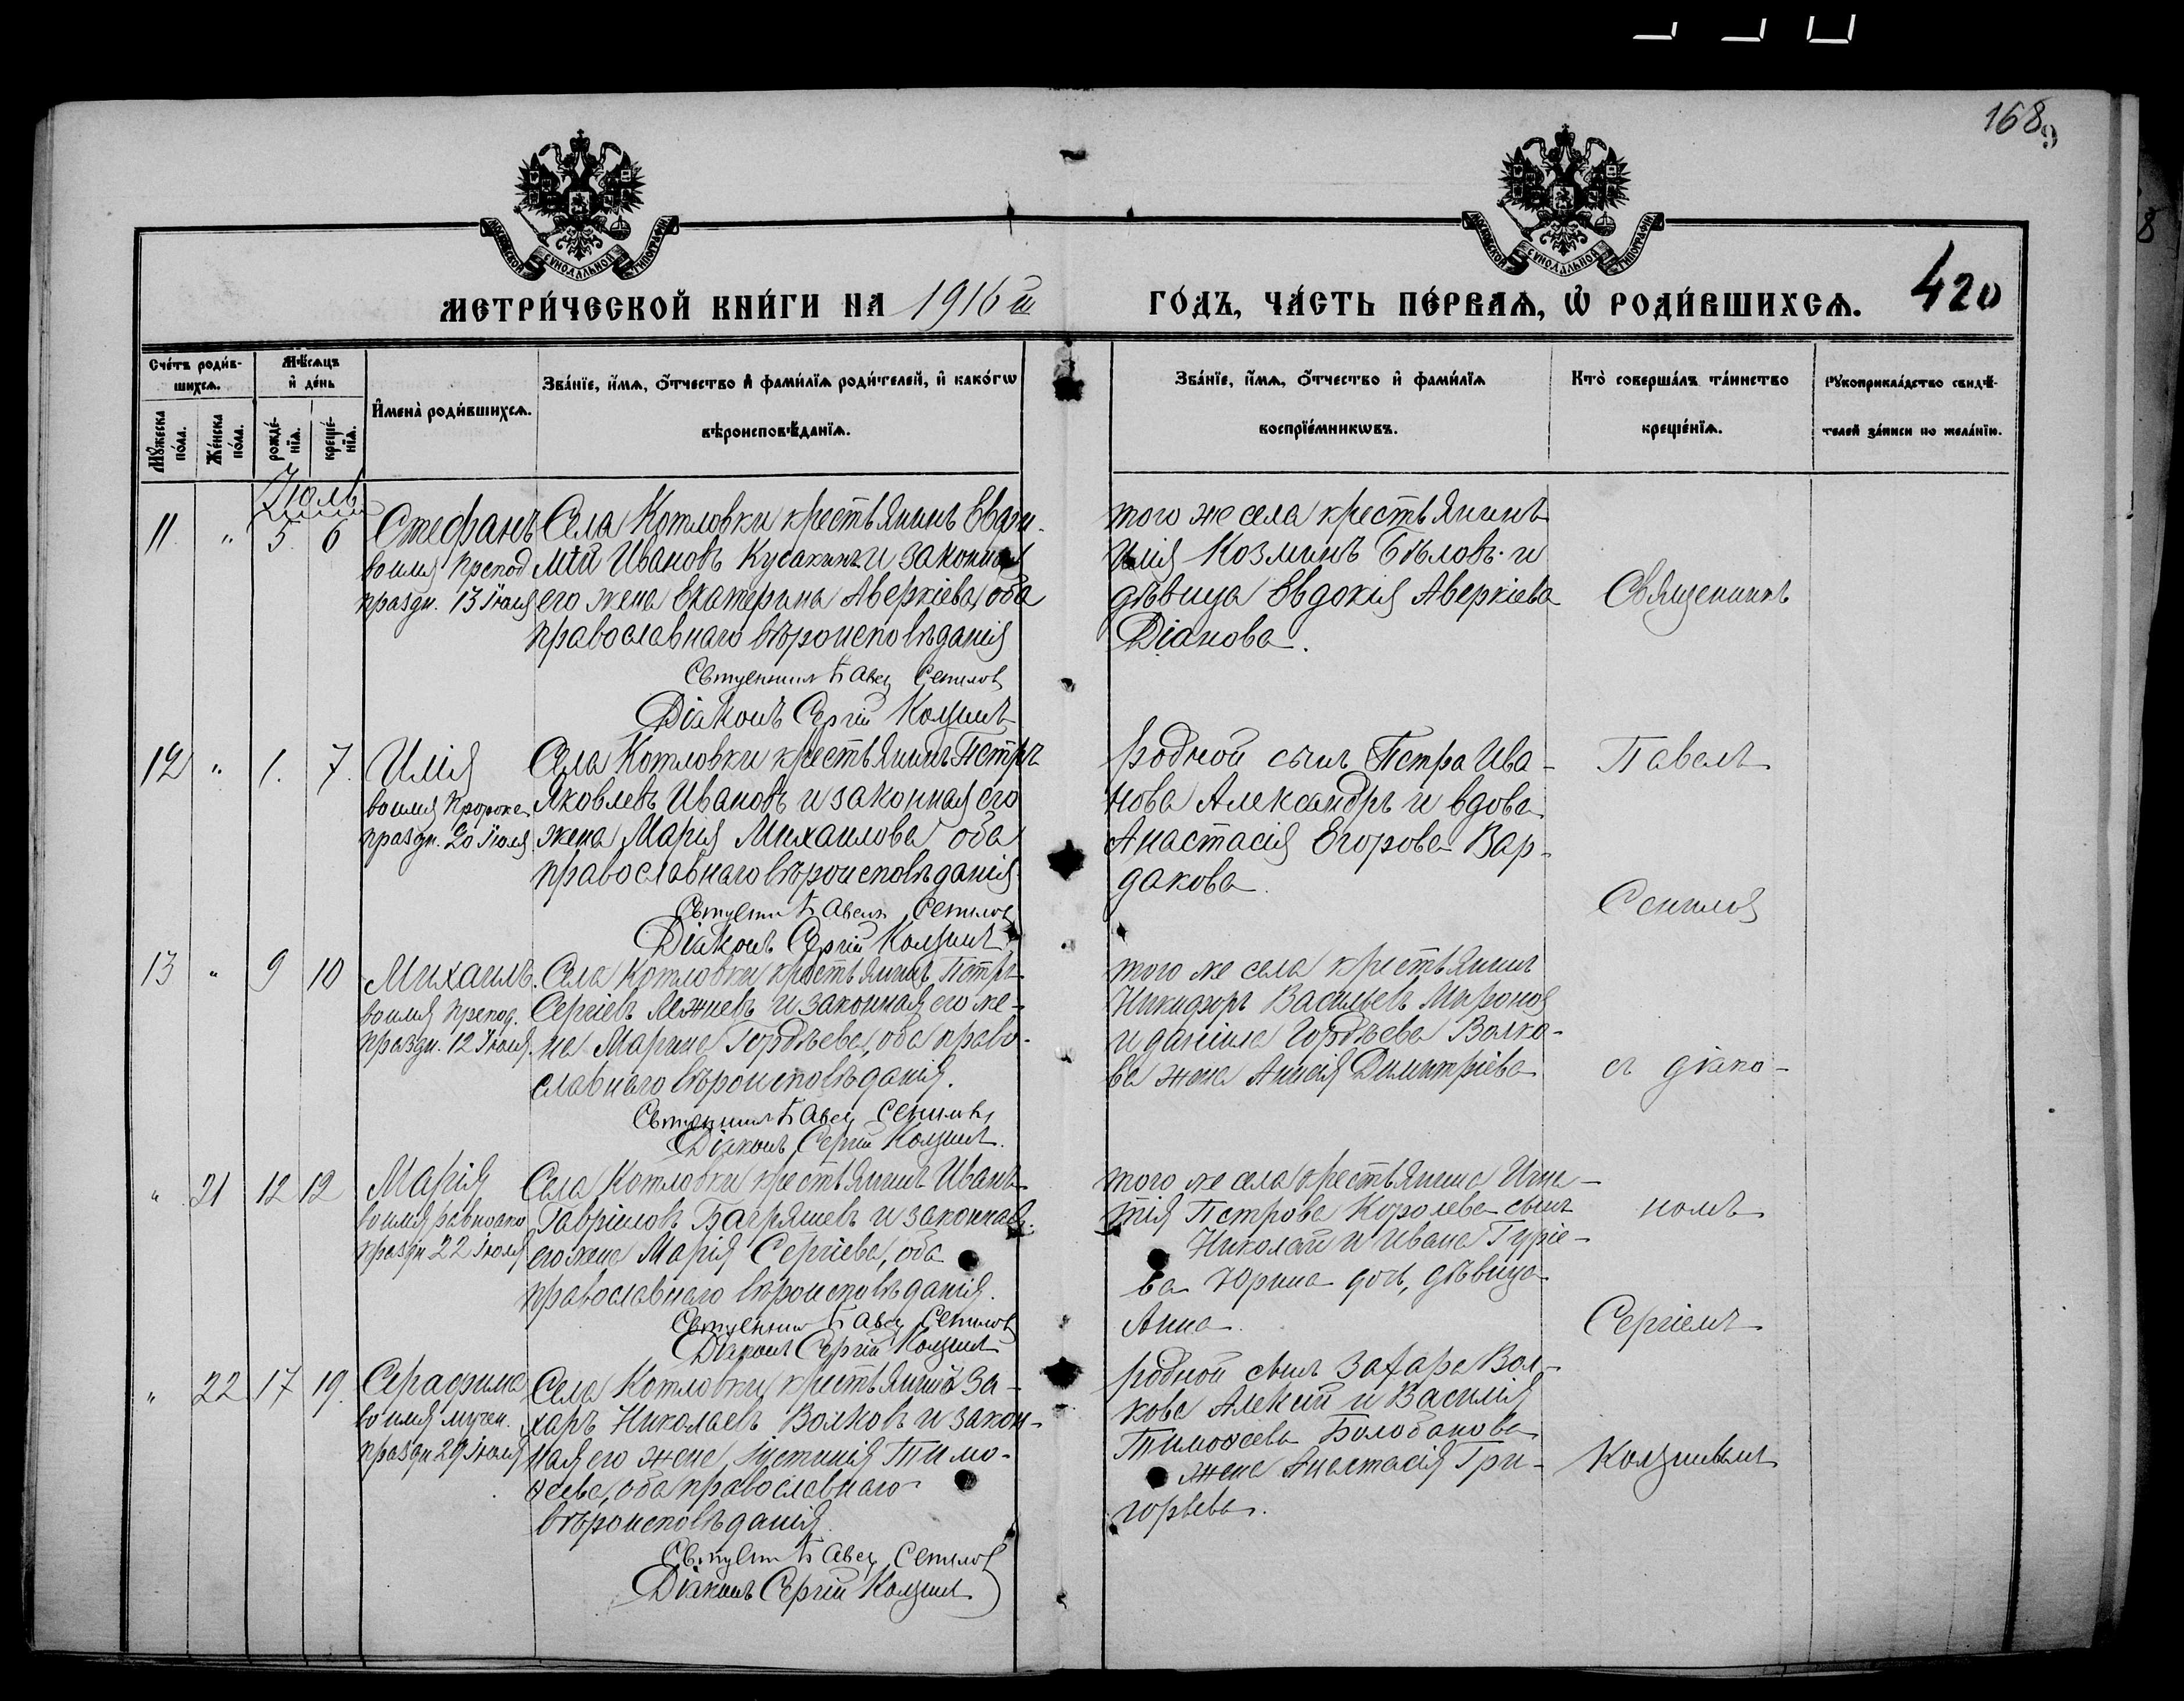 168
9
8
МОСКОВСКОЙ СУНОДАЛЬНОЙ ТИПОГРАФІИ
МОСКОВСКОЙ СУНОДАЛЬНОЙ ТИПОГРАФІИ
МЕТРИ́ЧЕСКОЙ КНИ́ГИ НА 1916 й ГО́ДЪ, ЧА́СТЬ ПЕ́РВАѦ, Ѽ РОДИ́ВШИХСѦ. 420
Сче́тъ роди́в-
шихсѧ.
Мѣ́сѧцъ
и҆ де́нь
Мꙋ́жеска
по́ла.
Же́нска
по́ла.
рожде́-
нїѧ.
креще́-
нїѧ.
И҆мена̀ роди́вшихсѧ.
Зва́нїе, и҆́мѧ, ѻ҆́тчество и҆ фами́лїѧ роди́телей, и҆ како́гѡ
вѣроисповѣ́данїѧ.
Зва́нїе, и҆́мѧ, ѻ҆́тчество и҆ фами́лїѧ
воспрїе́мникѡвъ.
Кто̀ соверша́лъ та́инство
креще́нїѧ.
Рꙋкоприкла́дство свидѣ́-
телей за́писи по жела́нїю.
Іюль
11 " 5 6 Стефанъ
во имя препод
праздн. 13 Іюля
Села Котловки крестьянинъ Евѳи-
мій Ивановъ Кусакинъ и законная
его жена Екатерина Аверкіева, оба
православнаго вѣроисповѣданія
Священникъ Павелъ
Діаконъ Сергій
того же села крестьянинъ
Илія Козминъ Бѣловъ и
дѣвица Евдокія Аверкіева
Діанова.
Священникъ
12 " 1. 7. Илія
во имя Пророка
праздн. 20 Іюля
Села Котловки крестьянинъ Петръ
Яковлевъ Ивановъ и законная его
жена Марія Михаилова оба
православнаго вѣроисповѣданія
Павелъ
Діаконъ Сергій
родной сынъ Петра Ива-
нова Александръ и вдова
Анастасія Егорова Вар-
дакова.
Павелъ
13 " 9 10 Михаилъ.
во имя препод.
праздн. 12 Іюля.
Села Котловки крестьянинъ Петръ
Сергіевъ Лежневъ и законная его же-
на Марина Гордѣева, оба право-
славнаго вѣроисповѣданія.
Священникъ Павелъ
Діаконъ Сергій
того же села крестьянинъ
Никифоръ Васильевъ Миронов
и Даніила Гордѣева Волко-
ва жена Анисія Димитріева
съ діако-
" 21 12 12 Марія
во имя равноапо
праздн 22 Іюля
Села Котловки крестьянинъ Иванъ
Гавріиловъ Багряшевъ и законная
его жена Марія Сергіева, оба
православнаго вѣроисповѣданія.
Священникъ Павелъ
Діаконъ Сергій
того же села крестьянина Игна-
тія Петрова Королева сынъ
Николай и Ивана Гуріе-
ва Юрина дочь, дѣвица
Анна.
номъ
Сергіемъ
" 22 17 19. Серафима
во имя мучен.
праздн 29 Іюля
Села Котловки крестьянинъ За-
харъ Николаевъ Волковъ и закон-
ная его жена Іустинія Тимо-
ѳеева, оба православнаго
вѣроисповѣданія.
Павелъ
Діаконъ Сергій
родной сынъ Захара Вол-
кова Алексій и Василія
Тимоѳеева Болобанова
жена Анастасія Гри-
горьева.